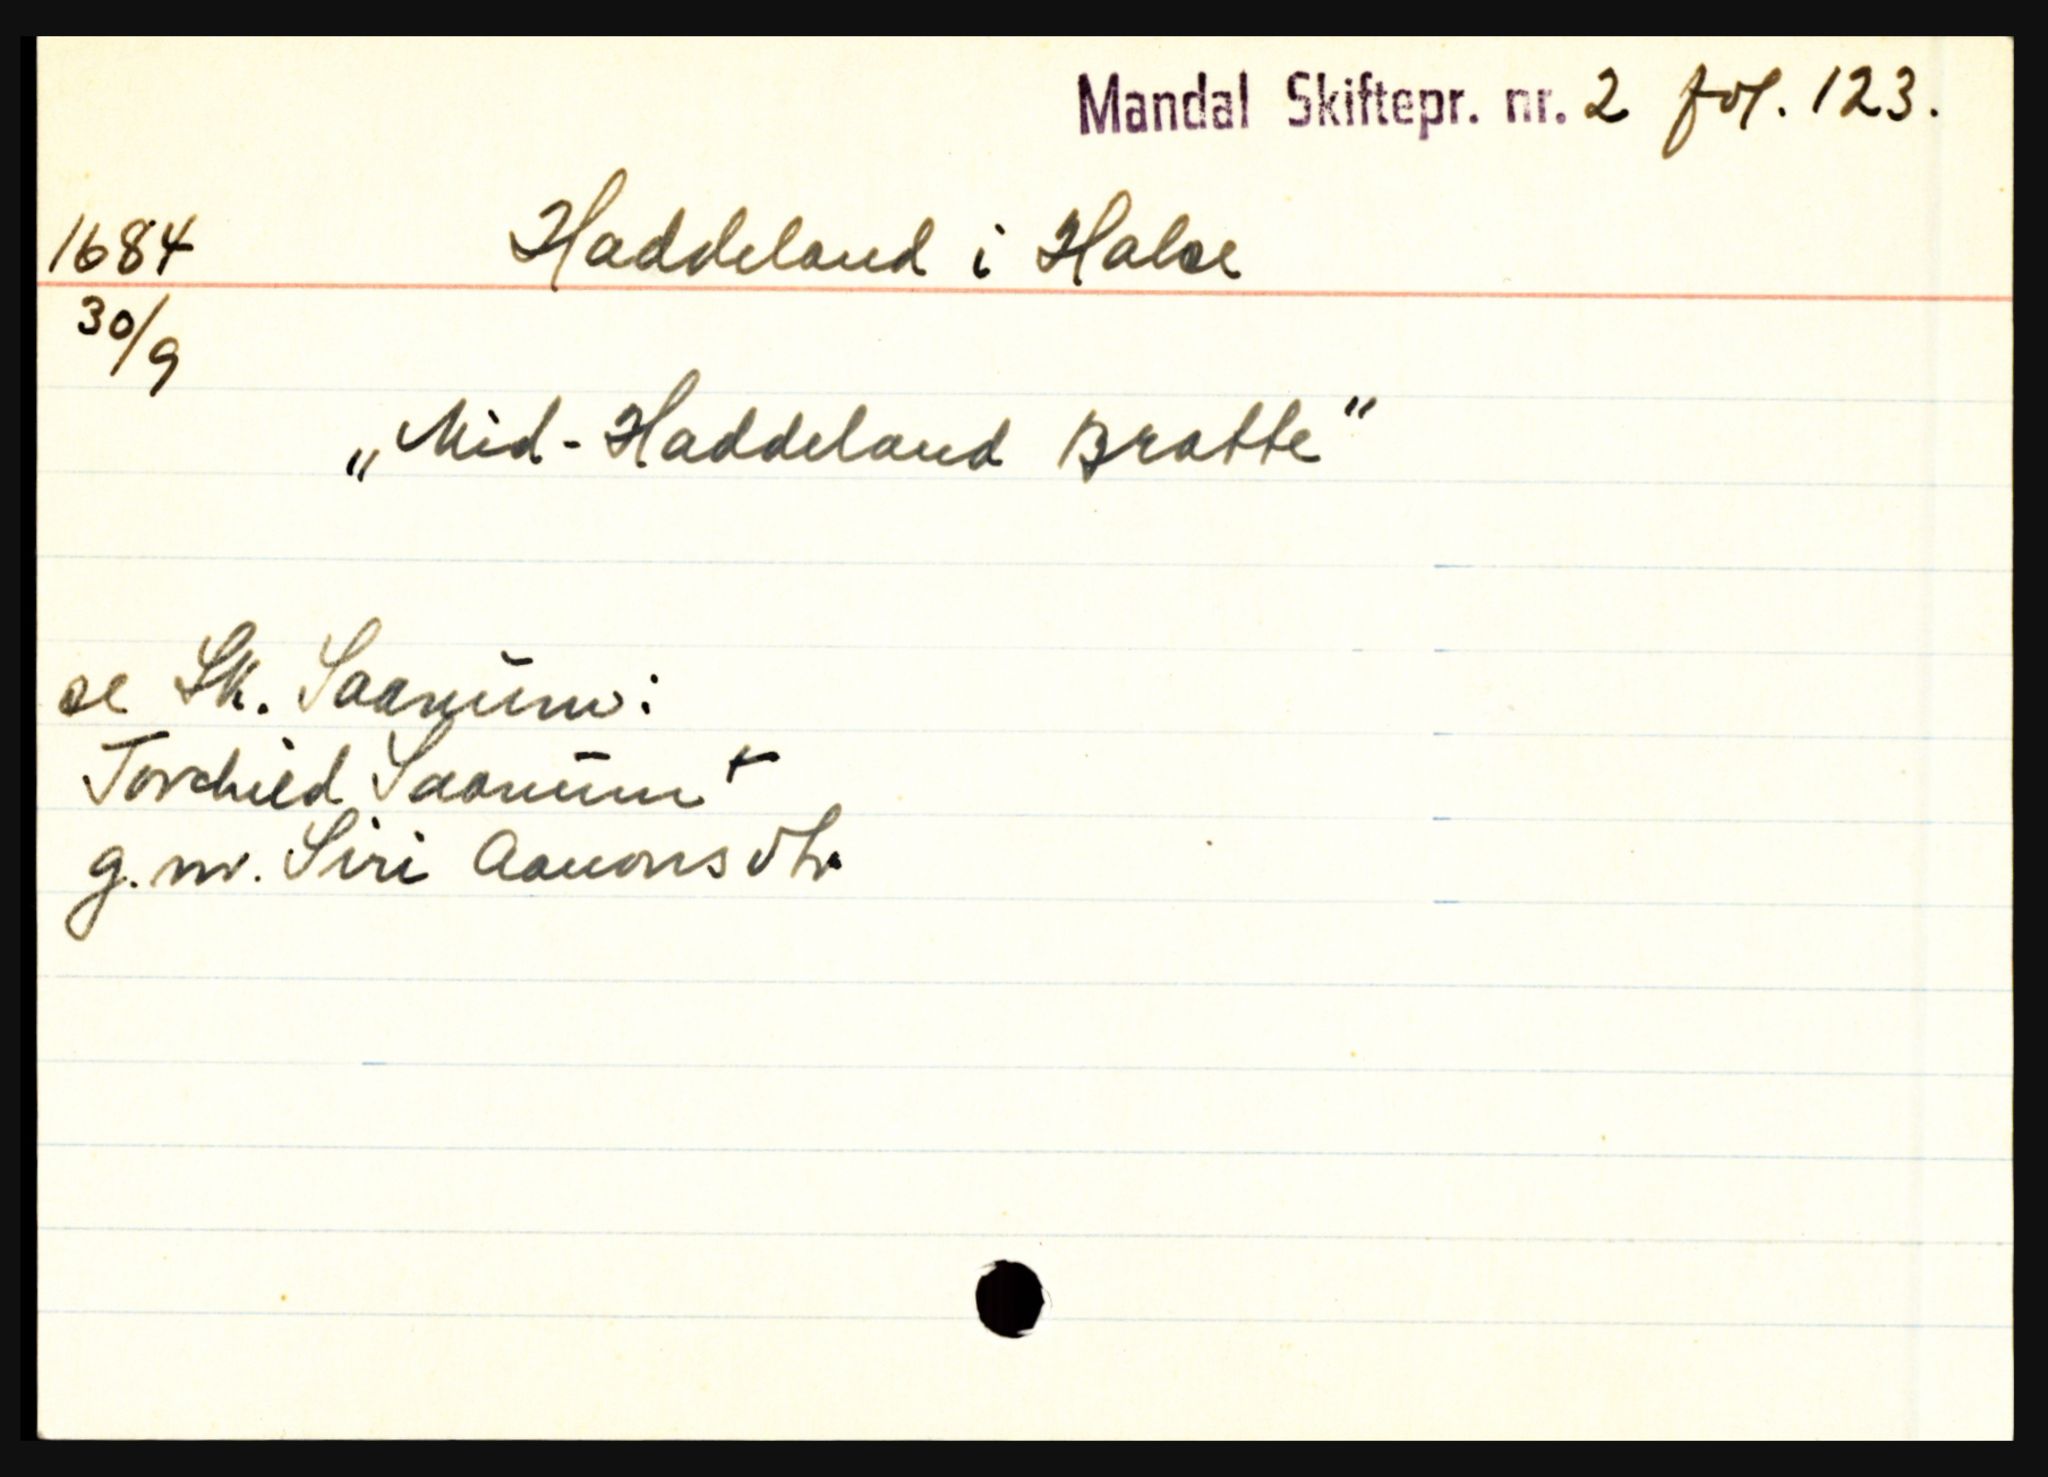 Mandal Skiftepr. nr. 2 fol. 123.
1684 Haddeland i Halse
30/9
„Mid-Haddeland Bratte"
se Sk. Saanum:
Torchild Saanum +
g.m. Siri Aanonsdtr.